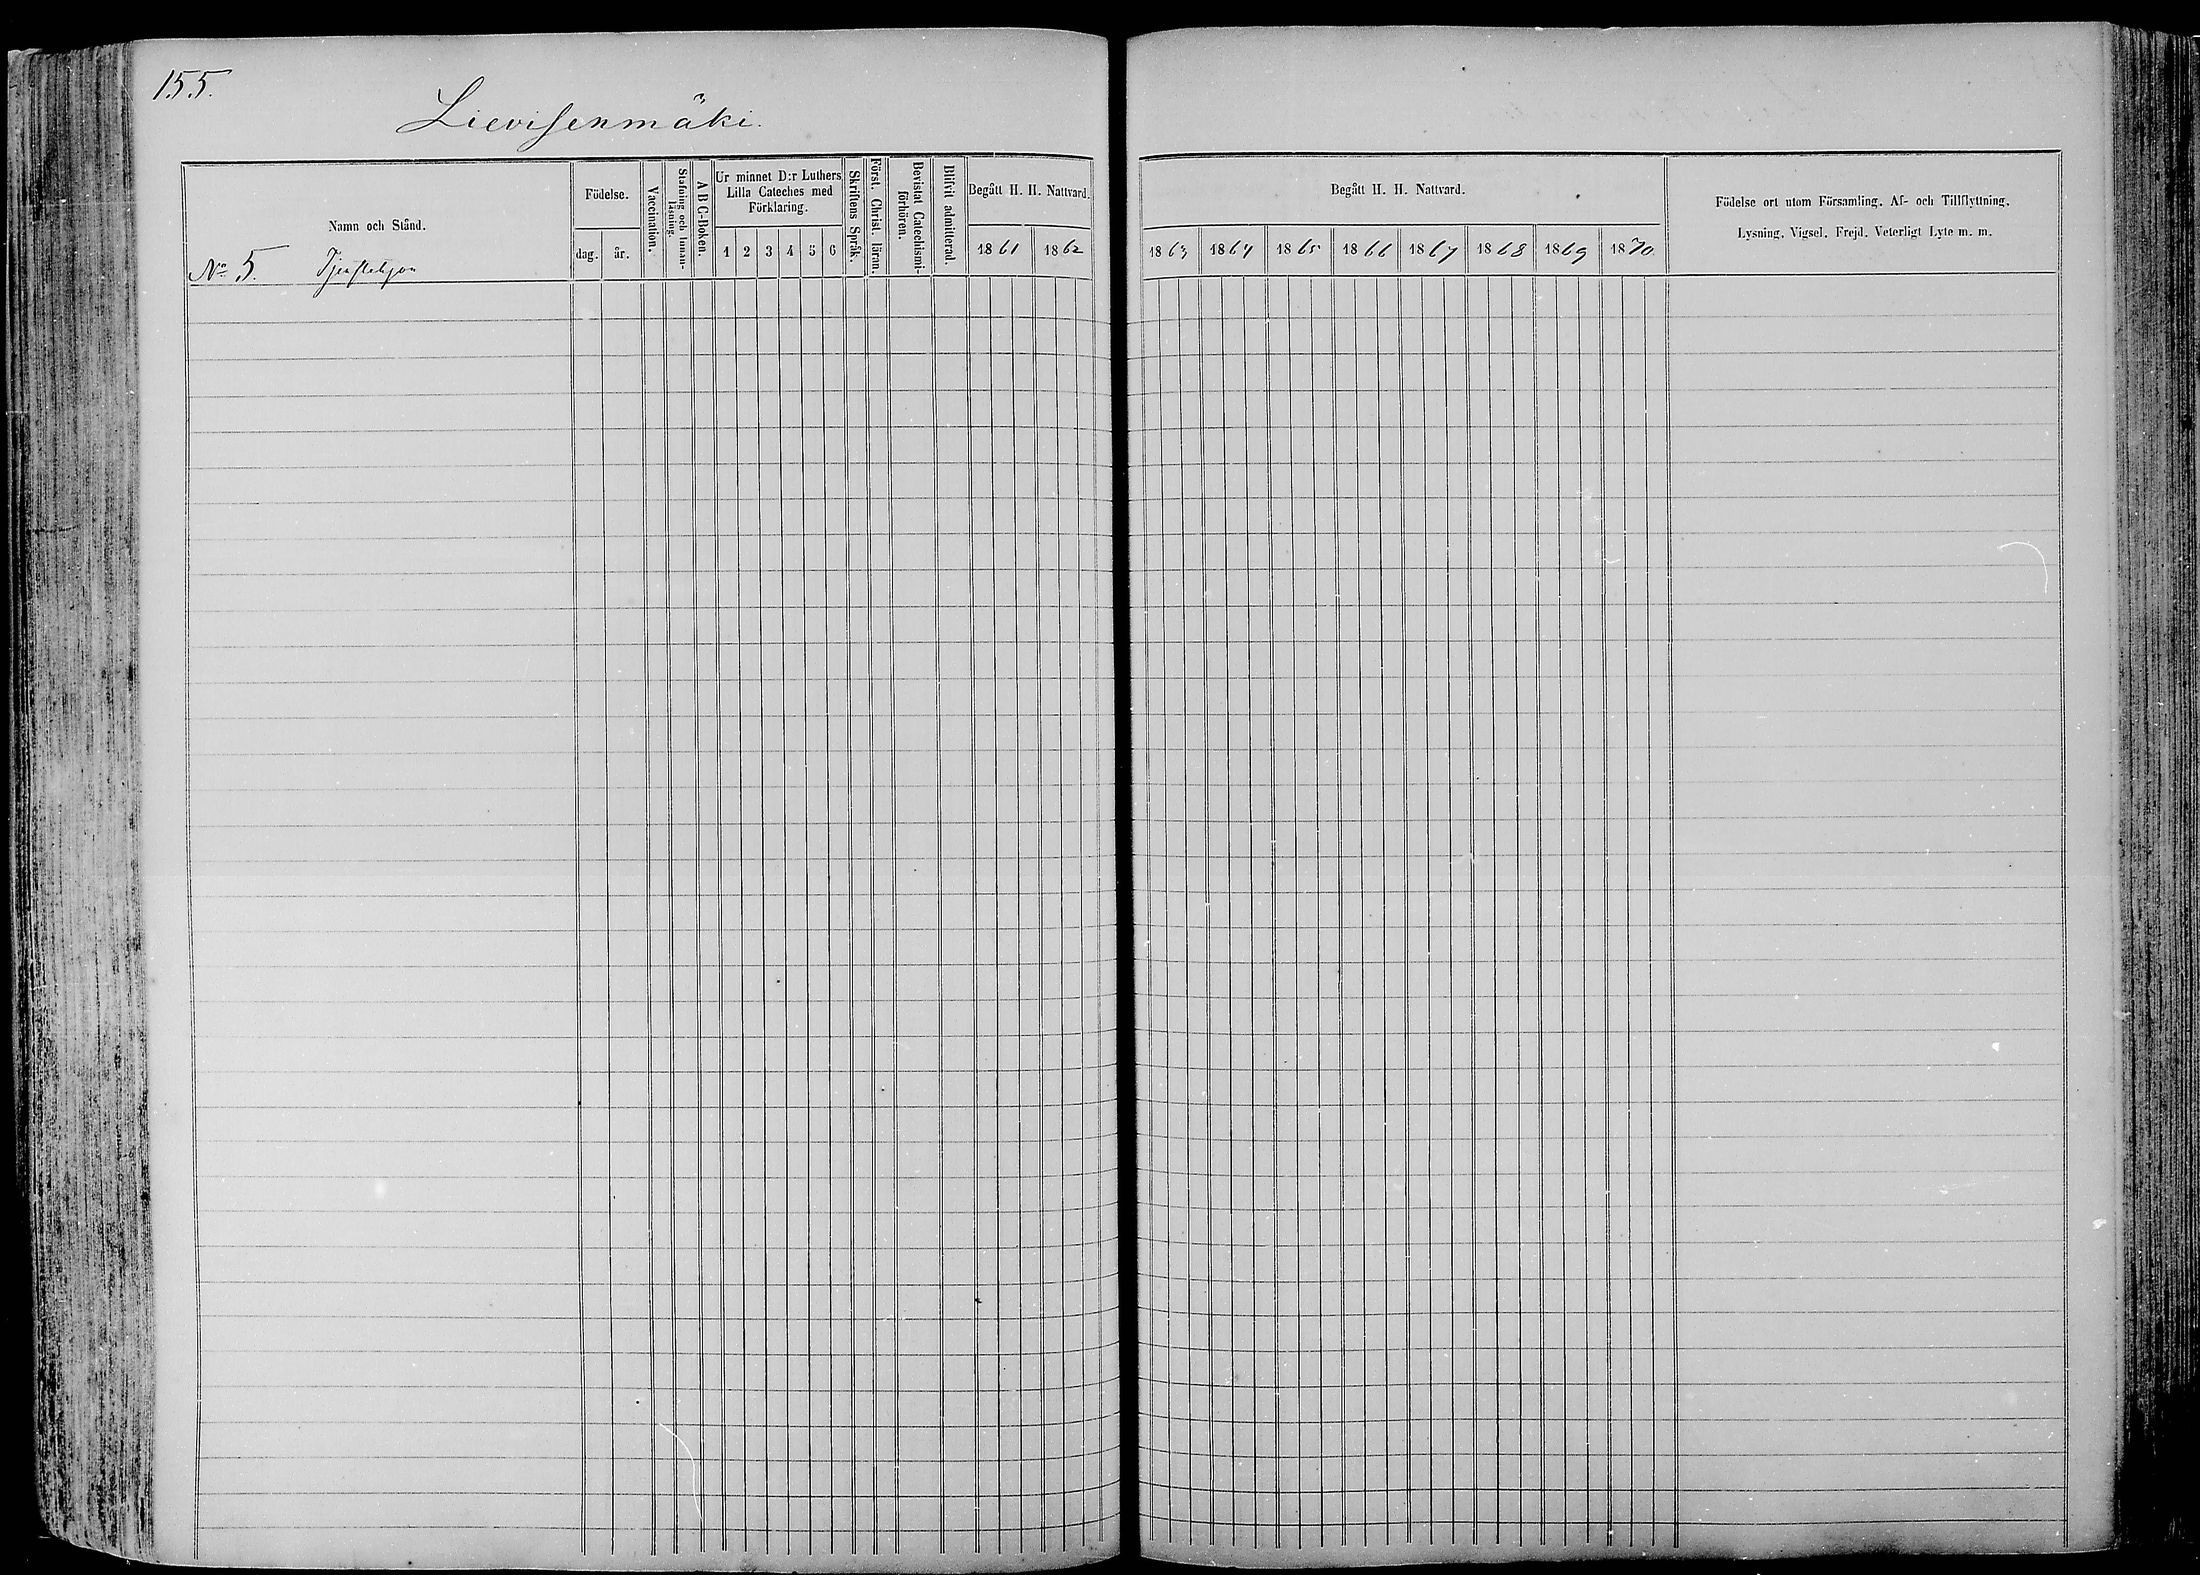 155.
Lievisenmäki.
Namn och Stånd.
No 5. Tjenstehjon
Födelse.
dag. år.
Vaccination.
Stafning och innan-
läsning.
A B C-Boken.
Ur minnet D:r Luthers
Lilla Cateches med
Förklaring.
1 2 3 4 5 6
Skriftens Språk.
Först. Christ. läran.
Bevistat Catechismi-
förhören.
Blifvit admitterad.
Begått H. H. Nattvard.
1861 1862
Begått H. H. Nattvard.
1863 1864 1865 1866 1867 1868 1869 1870.
Födelse ort utom Församling. Af- och Tillflyttning.
Lysning. Vigsel. Frejd. Veterligt Lyte m. m.